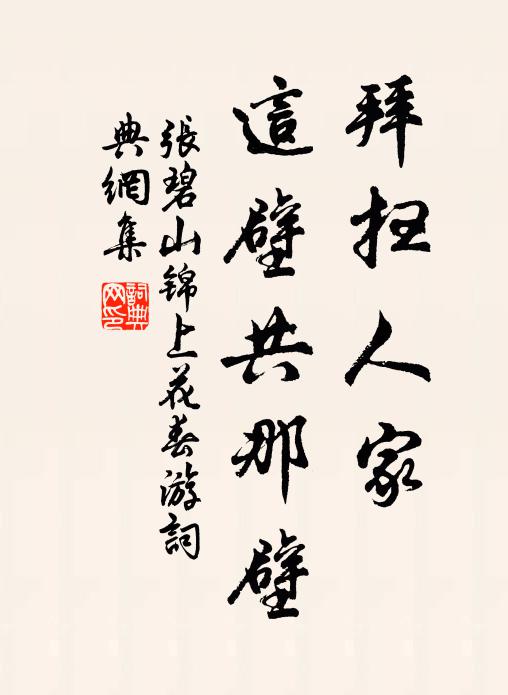 拜扫人家
這壁共那壁
張碧山锦上花春游詞
典網集
詞典网印